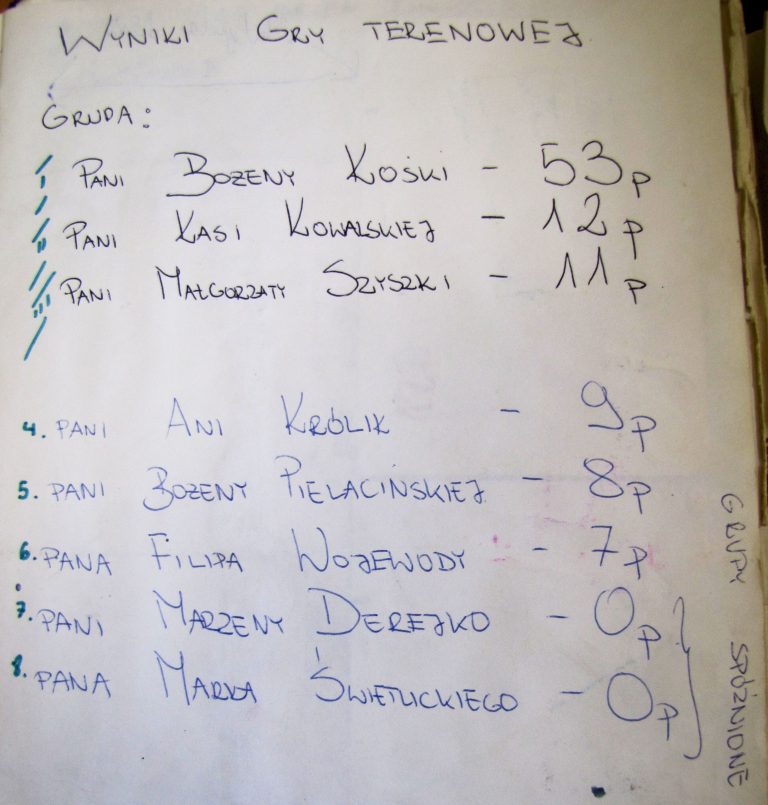 WYNIKI GRY TERENOWEJ
GRUPA:
I PANI BOŻENY KOŚKI - 53p
II PANI KASI KOWALSKIEJ - 12p
III PANI MAŁGORZATY SZYSZKI - 11p
4. PANI ANI KRÓLIK - 9p
5. PANI BOŻENY PIELACIŃSKIEJ - 8p
6. PANA FILIPA WOJEWODY - 7p
7. PANI MARZENY DEREJKO - 0p
8. PANA MARKA ŚWIETLICKIEGO - 0p
GRUPY SPÓŹNIONE